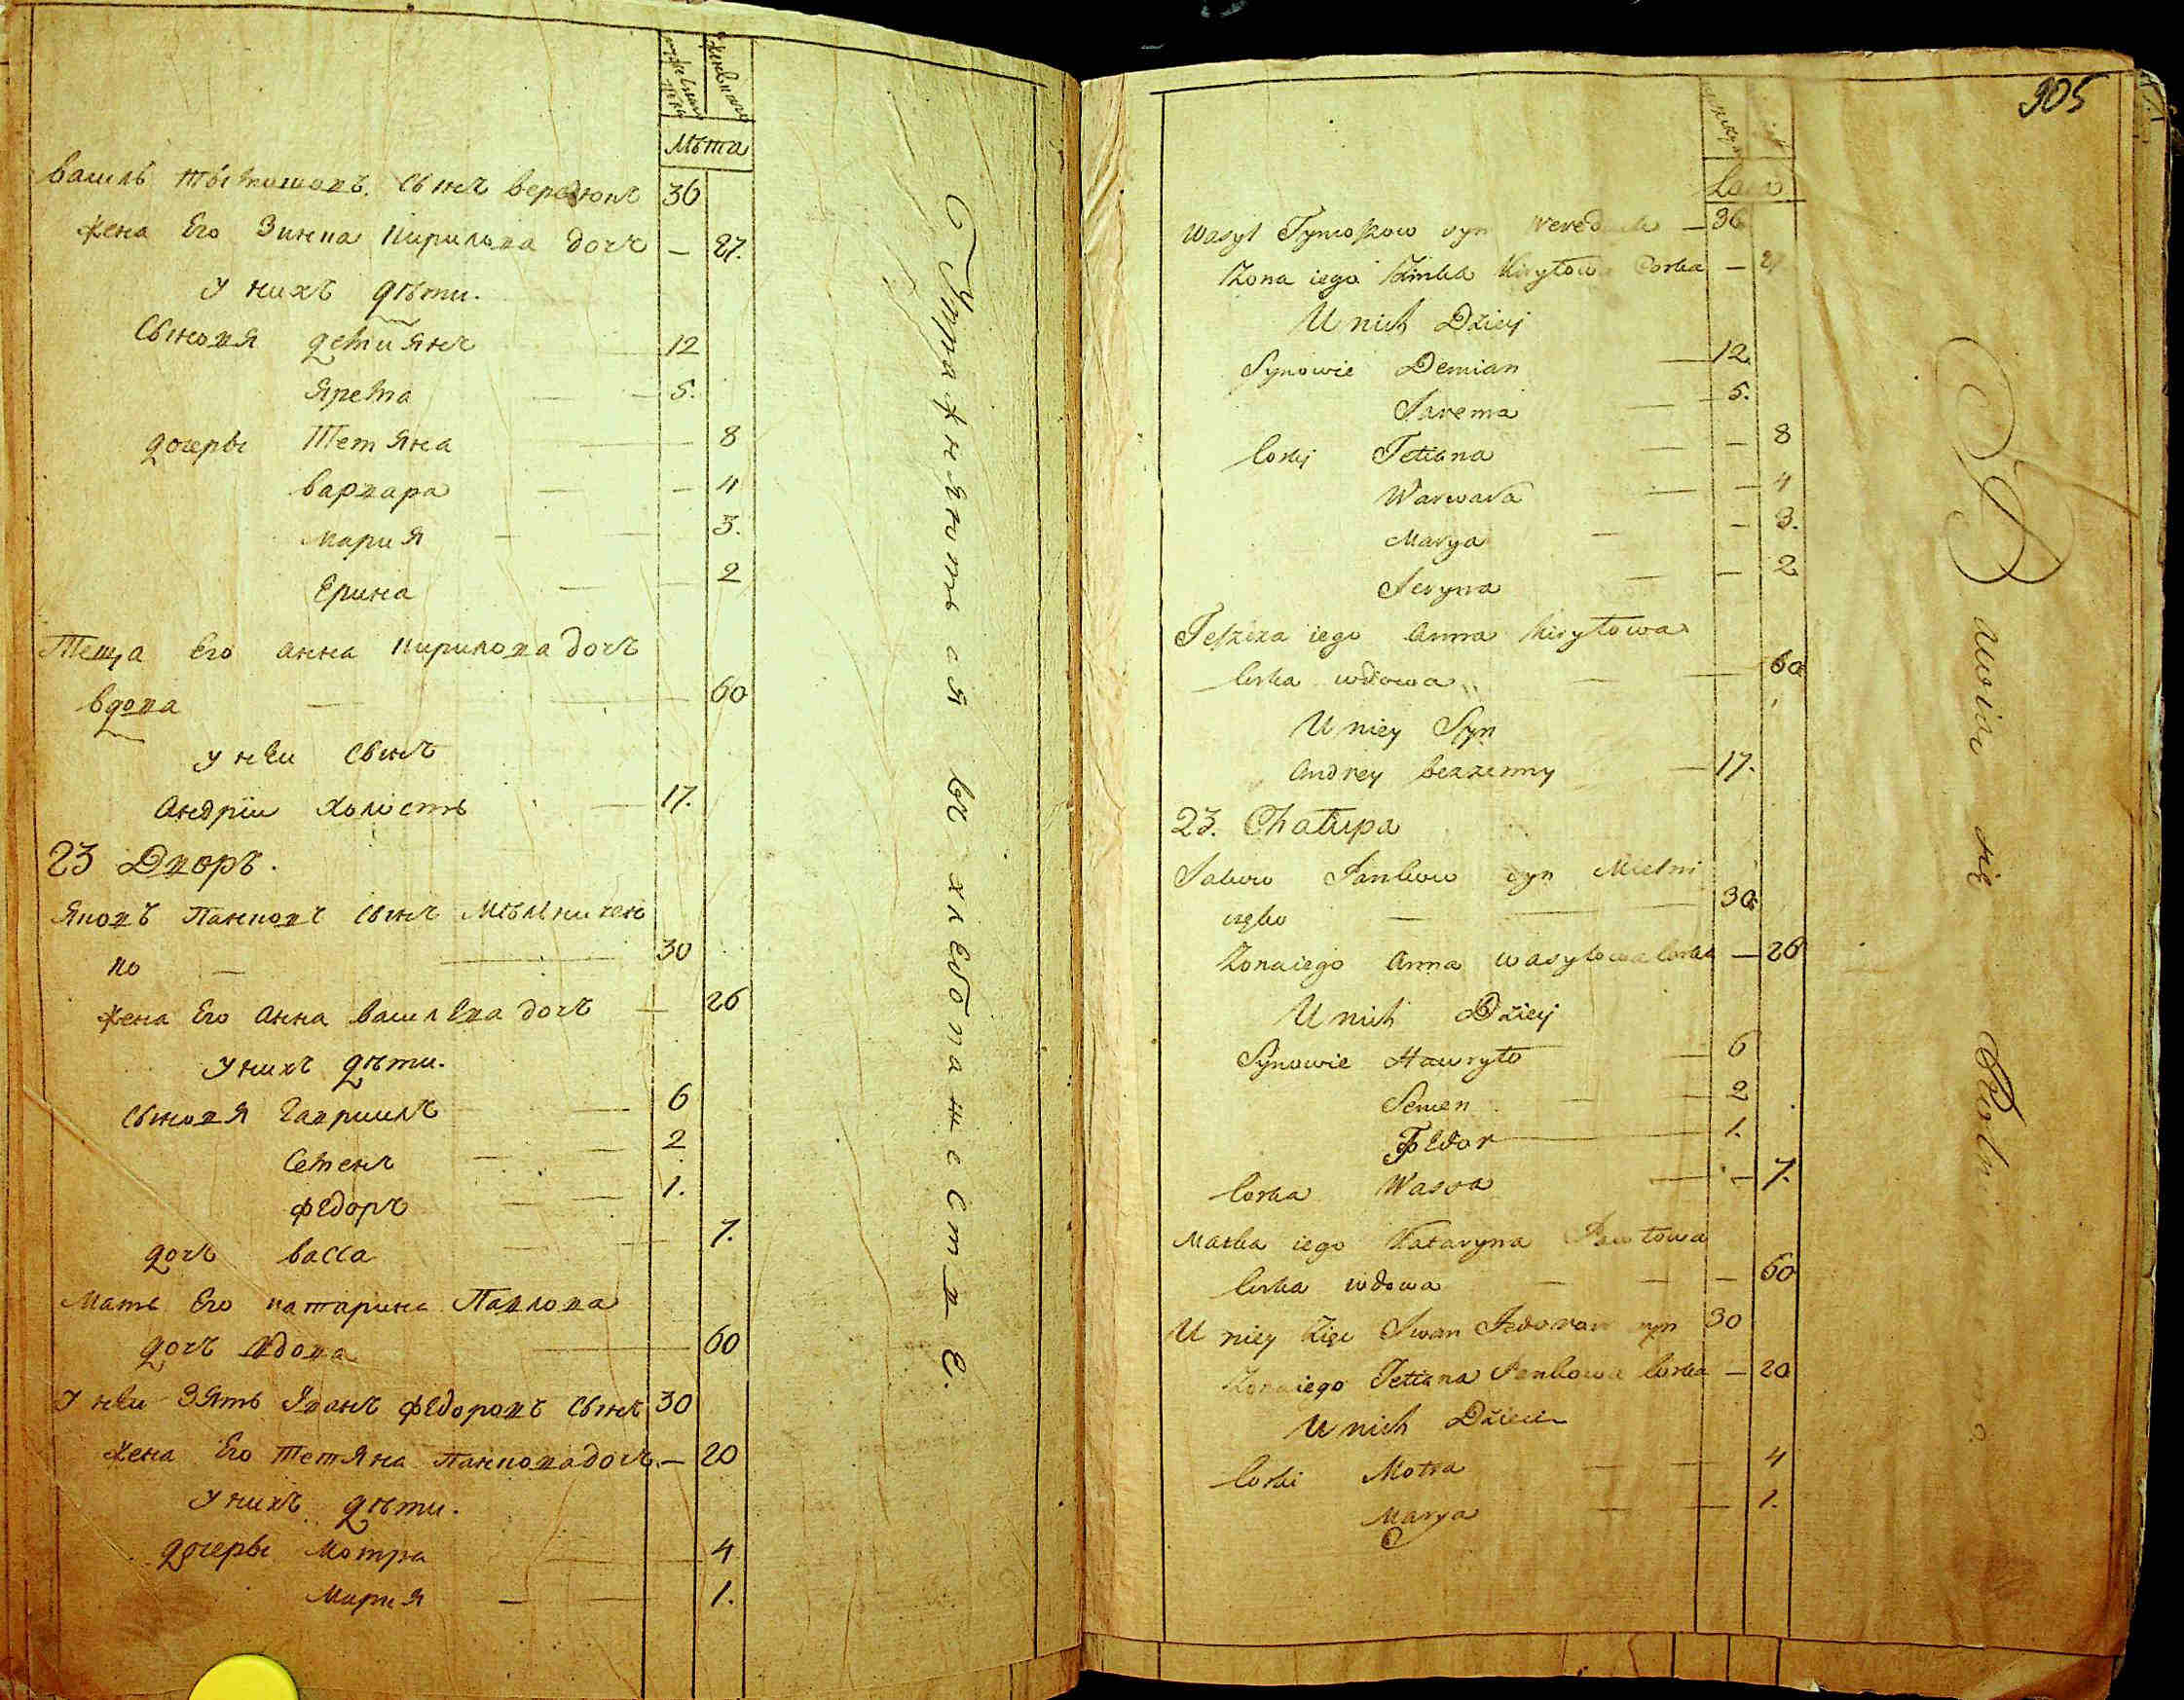 мужеска
пола
женскаго
Лѣта
Василь Тымошовъ сынъ Вередюкъ 36
жена Его Зинка Кирилова дочъ — 27.
У нихъ дѣти.
Сыновя Демиянъ 12
Ярема — — 5.
дочеры Тетяна — 8
Варвара — — 4
Мария — — 3.
Ерина — — 2
Теща Его Анна Кирилова дочъ
вдова — — 60
У неи сынъ
Андріи холостъ — 17.
23 Дворъ.
Яковъ Панковъ сынъ Мѣльничен
ко — — 30
жена Его Анна Василева дочъ — 26
У нихъ дѣти.
Сыновя Гавриилъ — 6
Семенъ — — 2
Федоръ — — 1.
дочъ Васса — — 7.
Мать Его Катарина Павлова
дочъ вдова — 60
У неи Зять Иванъ Федоровъ сынъ 30
жена Его Тетяна Панковадочъ — 20
У нихъ дѣти.
дочеры Мотра — 4
Мария — — 1.
Упражняются въ хлебопашестве.
905
Lata
Wasyl Tymoszow syn Wereduk — 36
Żona iego Zinka Kiryłowa Corka — 27
U nich Dziej
Synowie Demian — 12.
Jarema — 5.
Corkj Tetiana — — 8
Warwara — — 4
Marya — — 3.
Jeryna — — 2
Teszcza iego Anna Kiryłowa
Corka wdowa — — 60
U niey Syn
Andrey bezzenny — 17.
23. Chałupa
Jakow Pankow syn Mielni
częko — — 30.
Żona iego Anna Wasylowa Corka — 26
U nich Dziej
Synowie Hawryło — 6
Semen — — 2
Fedor — 1.
Corka Wassa — — 7.
Matka iego Kataryna Pawłowa
Corka wdowa — — — 60
U niey Zięć Iwan Fedorow syn 30
Żona iego Tetiana Pankowa Corka — 20
U nich Dzieci
Corki Motra — — 4
Marya — — 1.
Bawią się